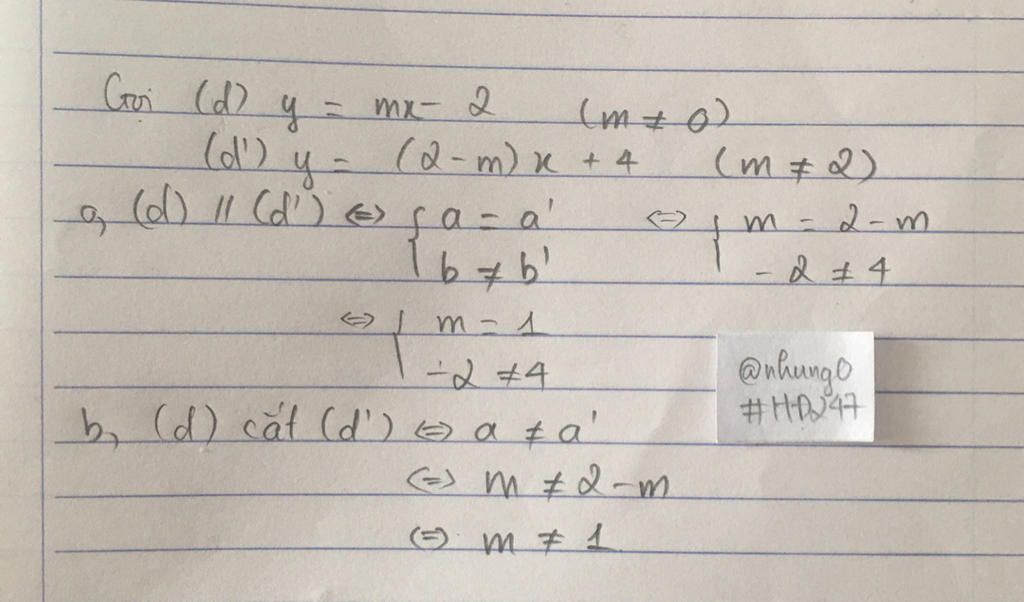 Gọi (d) y = mx - 2 (m ≠ 0)
(d') y = (2 - m) x + 4 (m ≠ 2)
a, (d) // (d') <=> { a = a' <=> { m = 2 - m
b ≠ b' - 2 ≠ 4
<=> { m = 1
-2 ≠ 4
@nhung0
#HDJ247
b, (d) cắt (d') <=> a ≠ a'
<=> m ≠ 2 - m
<=> m ≠ 1